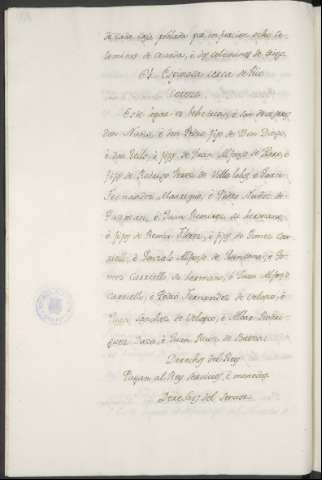 de cada casa poblada que ficiere, ocho celemines de cevada, é dos celemines de trigo.
61. Espinosa cerca de Rio
cerezo.
Este logar es behetria, é son devaseros
don Nuño, é don Pedro fijo de don Diego,
é don Tello, é fijos de Juan Alfonso de Haro, é
fijos de Rodrigo Perez de Villalobos, é Garci
Fernandez Manrique, é Pedro Nuñez de
Guzman, é Juan Ramirez su hermano,
é fijos de Remir Florez, é fijos de Gomez Car
riello, é Gonzalo Alfonso de Quintana, é Go
mez Carriello su hermano, é Juan Alfonso
Carriello, é Pedro Fernandez de Velasco, é
Juan Sanchez de Velasco, é Alvar Rodri
guez Daza, é Juan Ruiz de Baeza.
Derechos del Rey
Pagan al Rey servicios, é monedas
Derechos del Senor